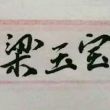 梁玉宝